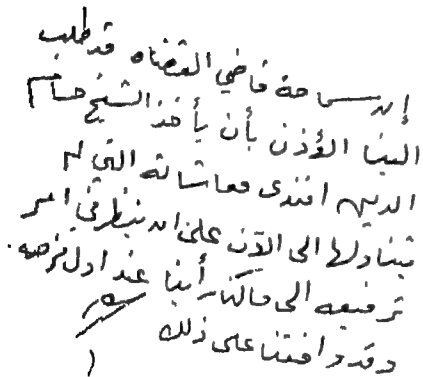 إن سماحة قاضي القضاه قد طلب
الينا الأذن بأن يأخذ الشيخ حسام
الدين افندى معاشاته التي لم
يتناولها الى الآن على ان ننظر في امر
ترفيعه الى ما كنا رأينا عند اول فرصه.
وقد وافقنا على ذلك